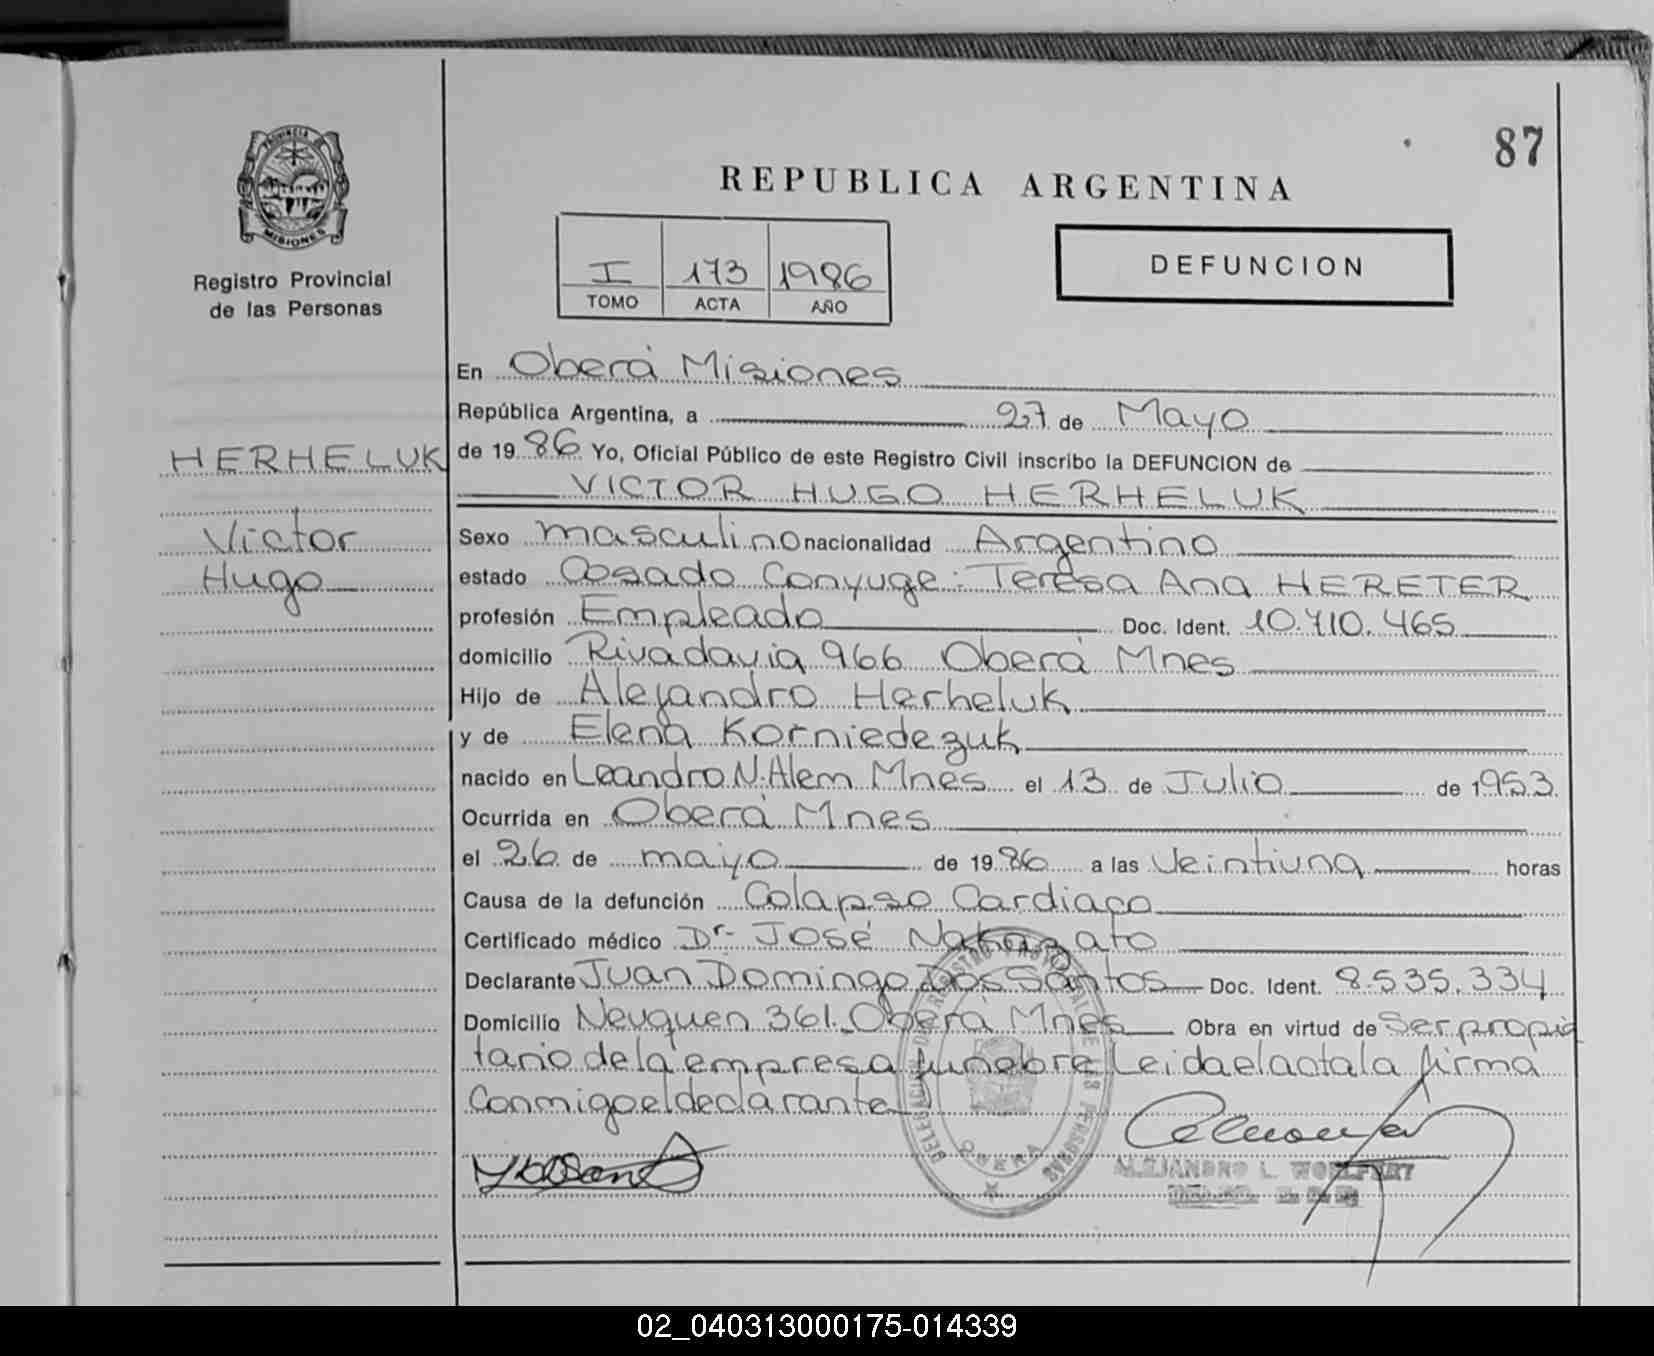 87
REPUBLICA ARGENTINA
PROVINCIA
MISIONES
Registro Provincial
de las Personas
I 173 1986
TOMO ACTA AÑO
DEFUNCION
HERHELUK
Victor
Hugo
En Oberá Misiones
República Argentina, a 27 de Mayo
de 1986 Yo, Oficial Público de este Registro Civil inscribo la DEFUNCION de
VICTOR HUGO HERHELUK
Sexo masculino nacionalidad Argentino
estado Casado Conyuge: Teresa Ana HERETER
profesión Empleado Doc. Ident. 10.710.465
domicilio Rivadavia 966 Oberá Mnes
Hijo de Alejandro Herheluk
y de Elena Korniedezuk
nacido en Leandro N. Alem Mnes el 13 de Julio de 1953
Ocurrida en Oberá Mnes
el 26 de mayo de 1986 a las Veintiuna horas
Causa de la defunción Colapso Cardiaco
Certificado médico Dr. José Nakazato
Declarante Juan Domingo Dos Santos Doc. Ident. 8.535.334
Domicilio Neuquen 361. Oberá Mnes Obra en virtud de Ser propie
tario de la empresa funebre Leida el acta la firma
Conmigo el declarante
OBERA
ALEJANDRO L. WOELFERT
02_040313000175-014339